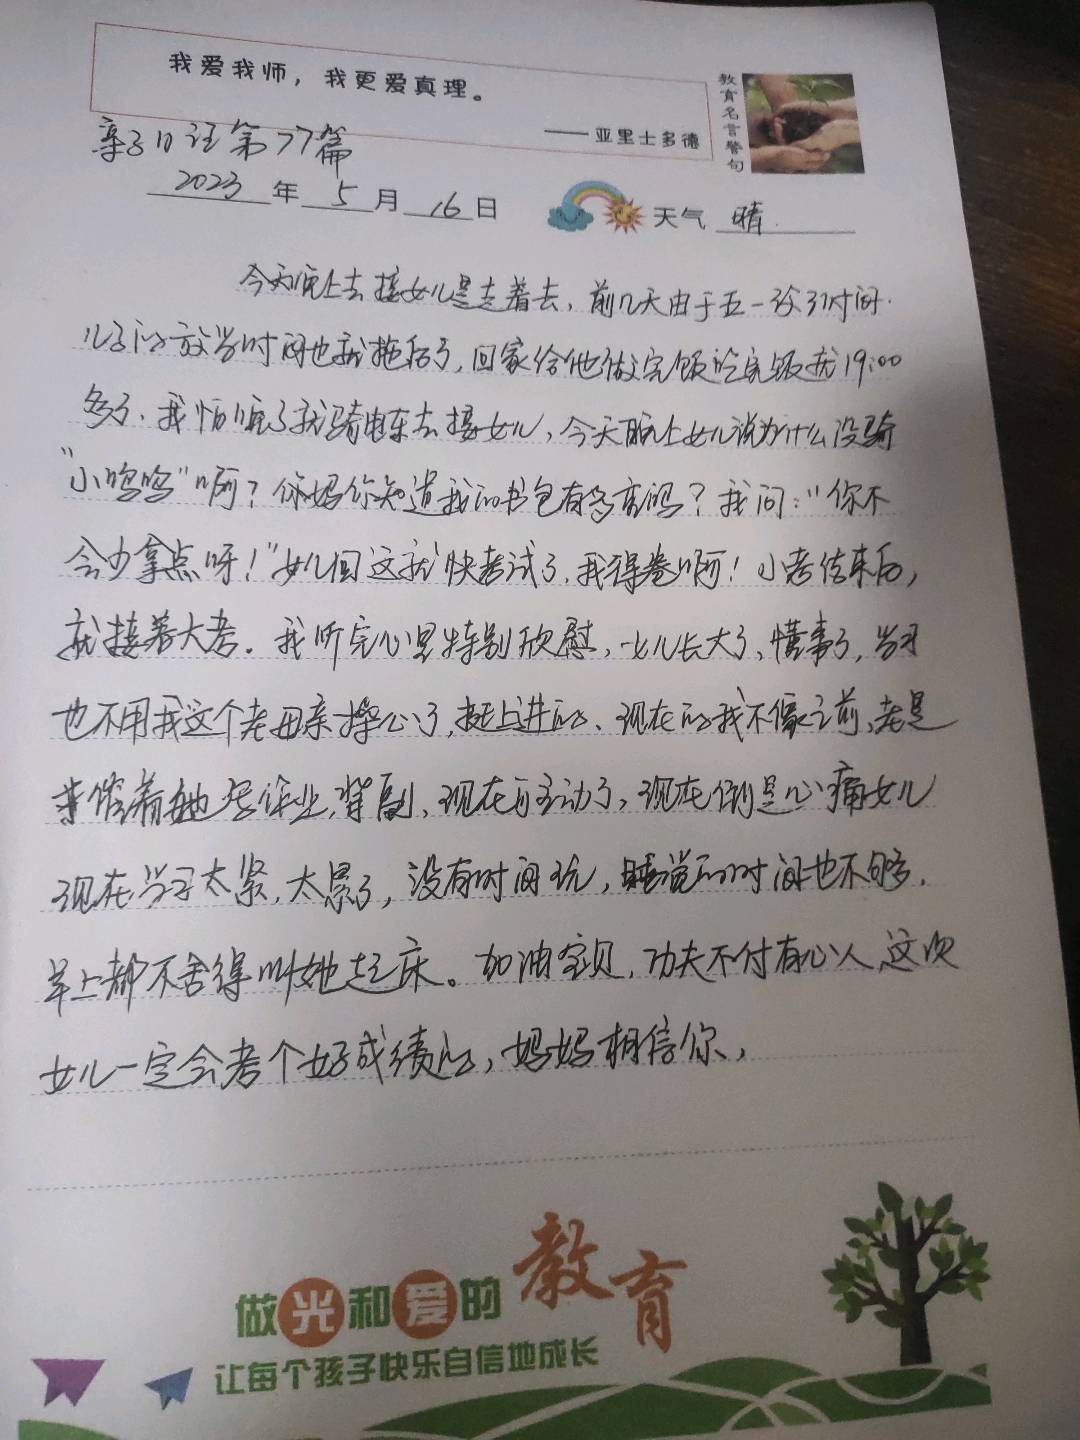 我爱我师，我更爱真理。
——亚里士多德
教育名言警句
亲子日记第77篇
2023年5月16日 天气 晴.
今天晚上去接女儿是走着去，前几天由于五一孩子时间.
儿子的放学时间也就拖后了，回家给他做完饭吃完饭就19:00
多了.我怕晚了就骑电车去接女儿，今天晚上女儿说为什么没骑
“小鸣鸣”啊？你妈你知道我的书包有多高吗？我问：“你不
会少拿点呀！”女儿回这就快考试了，我得卷啊！小考结束后，
就接着大考。我听完心里特别欣慰，女儿长大了、懂事了，学习
也不用我这个老母亲操心了，挺上进的、现在的我不像之前，老是
催着她写作业，背副，现在自主动了，现在倒是心痛女儿
现在学习太紧，太累了，没有时间玩，睡觉的时间也不够，
早上都不舍得叫她起床。加油宝贝，功夫不付有心人，这次
女儿一定会考个好成绩的，妈妈相信你，
做光和爱的教育
让每个孩子快乐自信地成长